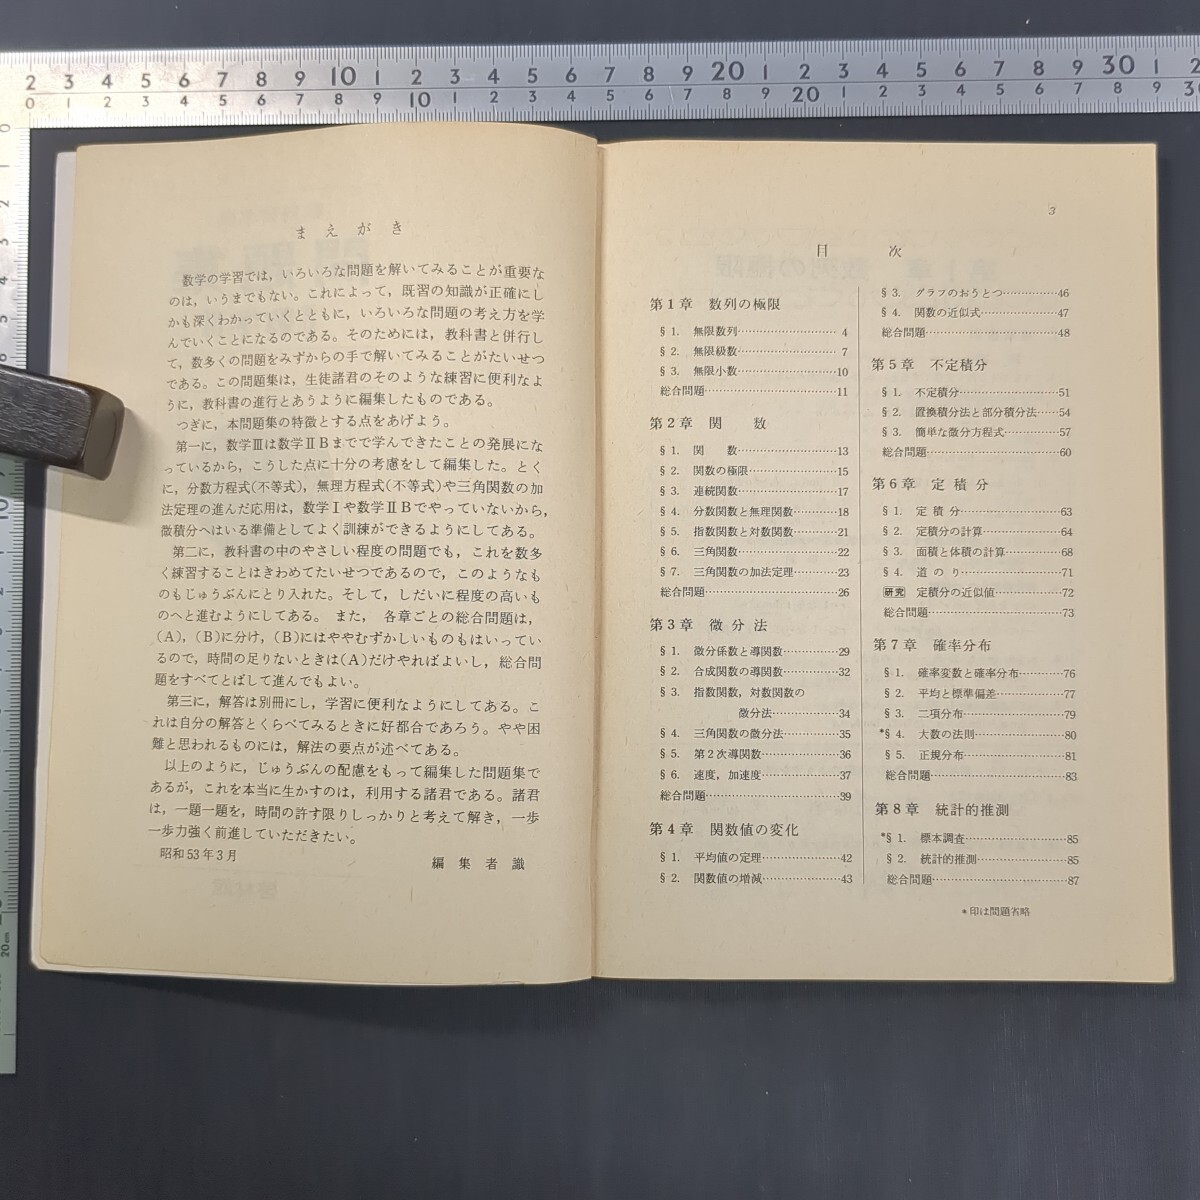 2 3 4 5 6 7 8 9 10 1 2 3 4 5 6 7 8 9 20 1 2 3 4 5 6 7 8 9 30 1 2
0 1 2 3 4 5 6 7 8 9 10 1 2 3 4 5 6 7 8 9 20 1 2 3 4 5 6 7 8 9 30
まえがき
数学の学習では，いろいろな問題を解いてみることが重要な
のは，いうまでもない。これによって，既習の知識が正確にし
かも深くわかっていくとともに，いろいろな問題の考え方を学
んでいくことになるのである。そのためには，教科書と併行し
て，数多くの問題をみずからの手で解いてみることがたいせつ
である。この問題集は，生徒諸君のそのような練習に便利なよ
うに，教科書の進行とあうように編集したものである。
つぎに，本問題集の特徴とする点をあげよう。
第一に，数学Ⅲは数学ⅡBまでで学んできたことの発展にな
っているから，こうした点に十分の考慮をして編集した。とく
に，分数方程式(不等式)，無理方程式(不等式)や三角関数の加
法定理の進んだ応用は，数学Ⅰや数学ⅡBでやっていないから，
微積分へはいる準備としてよく訓練ができるようにしてある。
第二に，教科書の中のやさしい程度の問題でも，これを数多
く練習することはきわめてたいせつであるので，このようなも
のもじゅうぶんにとり入れた。そして，しだいに程度の高いも
のへと進むようにしてある。また，各章ごとの総合問題は，
(A)，(B)に分け，(B)にはややむずかしいものもはいってい
るので，時間の足りないときは(A)だけやればよいし，総合問
題をすべてとばして進んでもよい。
第三に，解答は別冊にし，学習に便利なようにしてある。こ
れは自分の解答とくらべてみるときに好都合であろう。やや困
難と思われるものには，解法の要点が述べてある。
以上のように，じゅうぶんの配慮をもって編集した問題集で
あるが，これを本当に生かすのは，利用する諸君である。諸君
は，一題一題を，時間の許す限りしっかりと考えて解き，一歩
一歩力強く前進していただきたい。
昭和53年3月
編集者識
3
目次
第1章 数列の極限
§1. 無限数列……………4
§2. 無限級数……………7
§3. 無限小数……………10
総合問題……………11
第2章 関数
§1. 関数……………13
§2. 関数の極限……………15
§3. 連続関数……………17
§4. 分数関数と無理関数……18
§5. 指数関数と対数関数……21
§6. 三角関数……………22
§7. 三角関数の加法定理……23
総合問題……………26
第3章 微分法
§1. 微分係数と導関数………29
§2. 合成関数の導関数………32
§3. 指数関数，対数関数の
微分法…………34
§4. 三角関数の微分法………35
§5. 第2次導関数…………36
§6. 速度，加速度…………37
総合問題……………39
第4章 関数値の変化
§1. 平均値の定理…………42
§2. 関数値の増減…………43
§3. グラフのおうとつ………46
§4. 関数の近似式…………47
総合問題……………48
第5章 不定積分
§1. 不定積分……………51
§2. 置換積分法と部分積分法……54
§3. 簡単な微分方程式………57
総合問題……………60
第6章 定積分
§1. 定積分……………63
§2. 定積分の計算…………64
§3. 面積と体積の計算………68
§4. 道のり……………71
研究 定積分の近似値………72
総合問題……………73
第7章 確率分布
§1. 確率変数と確率分布……76
§2. 平均と標準偏差………77
§3. 二項分布……………79
*§4. 大数の法則…………80
§5. 正規分布……………81
総合問題……………83
第8章 統計的推測
*§1. 標本調査……………85
§2. 統計的推測…………85
総合問題……………87
*印は問題省略